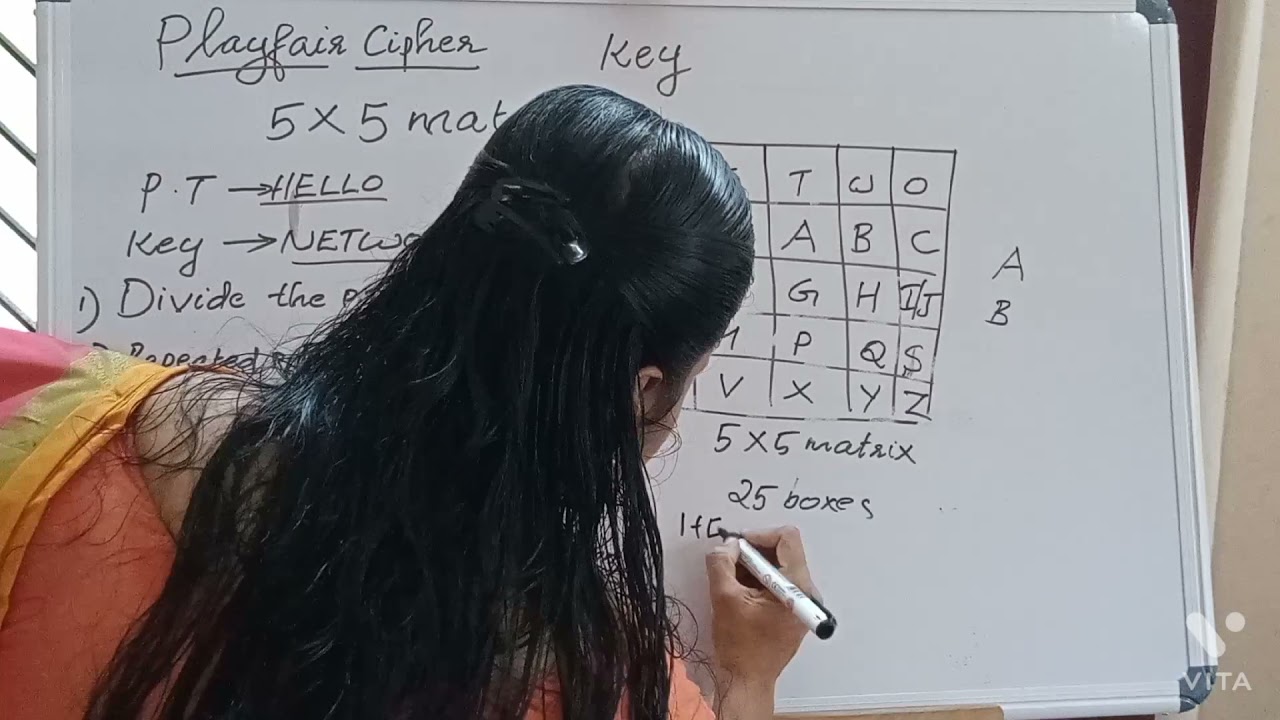 Playfair Cipher
Key
5X5 mat
P.T → HELLO
Key → NETWO
1) Divide the
Repeated
T W O
A B C
G H I/J
P Q S
V X Y Z
A
B
5X5 matrix
25 boxes
VITA